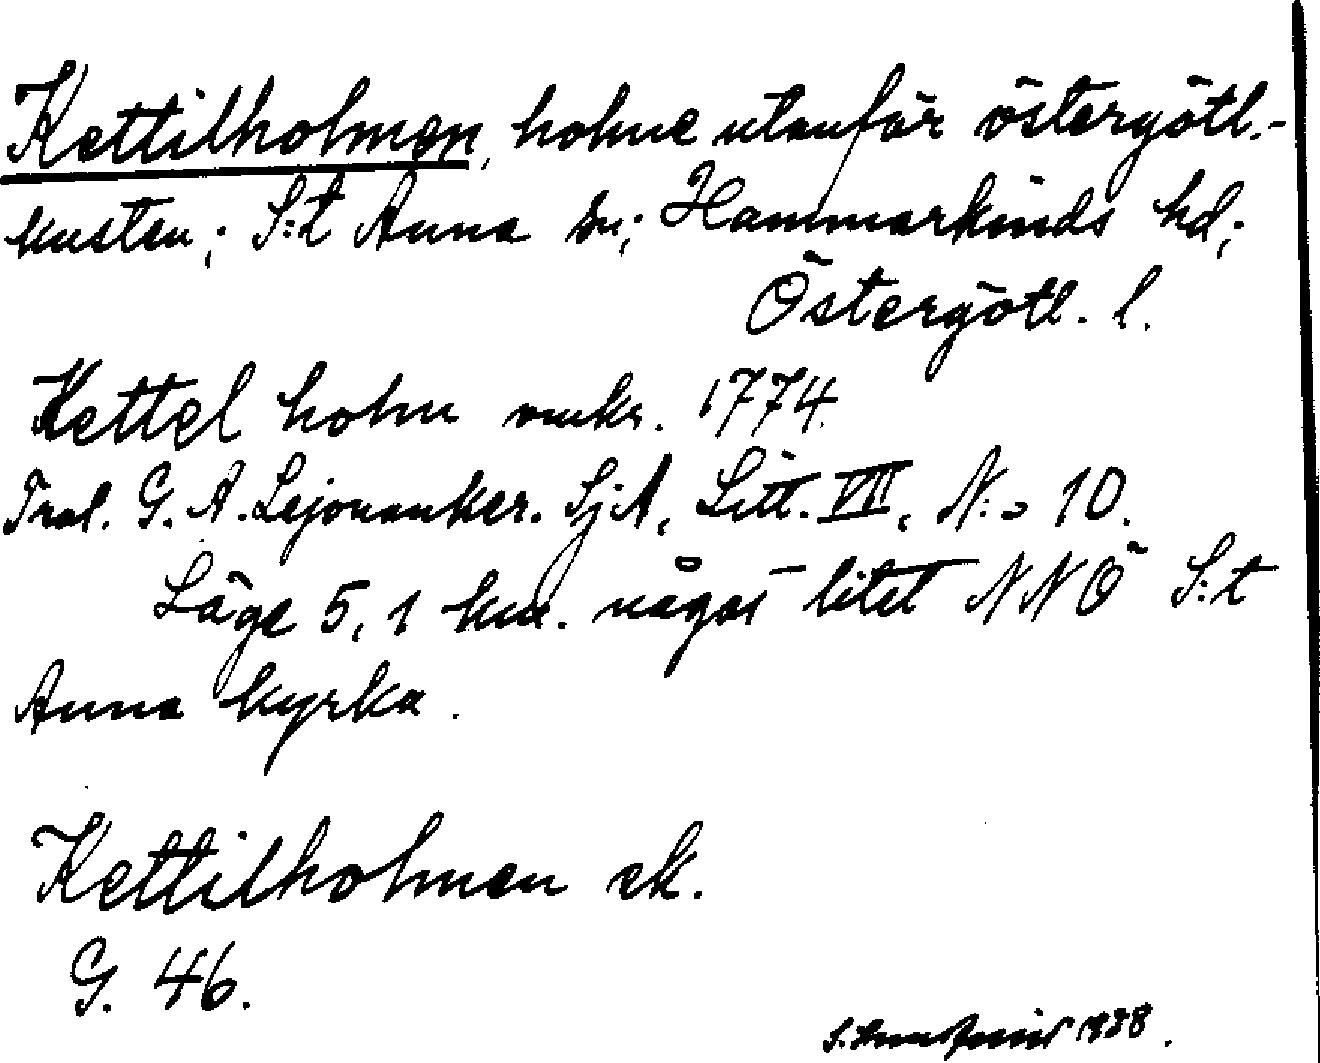 Kettilholmen, holme utanför östergötl.-
kusten; S:t Anna sn; Hammarkinds hd;
Östergötl. l.
Kettel holm omkr. 1774.
Tral. G. A. Lejonanker. SjA, Litt. VIII, N:o 10.
Läge 5,1 km. något litet NNÖ S:t
Anna kyrka.
Kettilholmen ek.
G. 46.
1938.